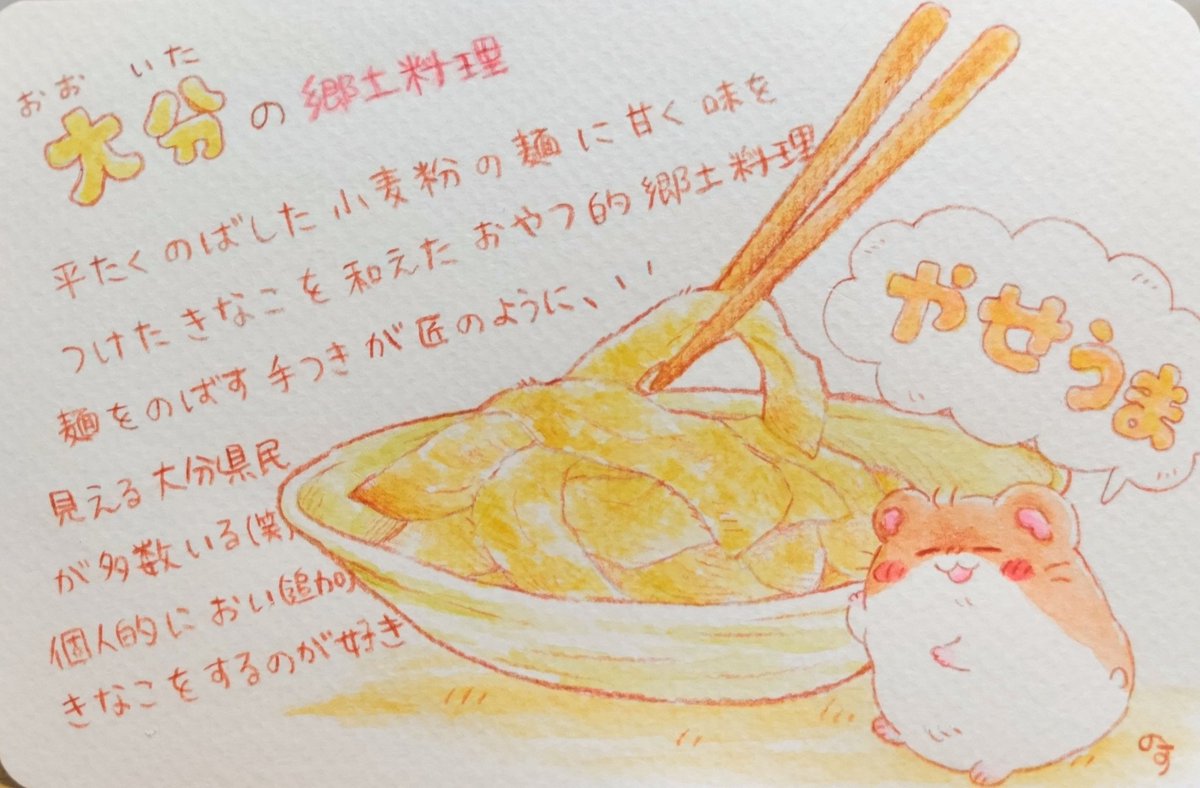 おおいた
大分の郷土料理
平たくのばした小麦粉の麺に甘く味を
つけたきなこを和えたおやつ的郷土料理
麺をのばす手つきが匠のように、、、
見える大分県民
が多数いる(笑)
個人的におい(追加)
きなこをするのが好き
やせうま
のす